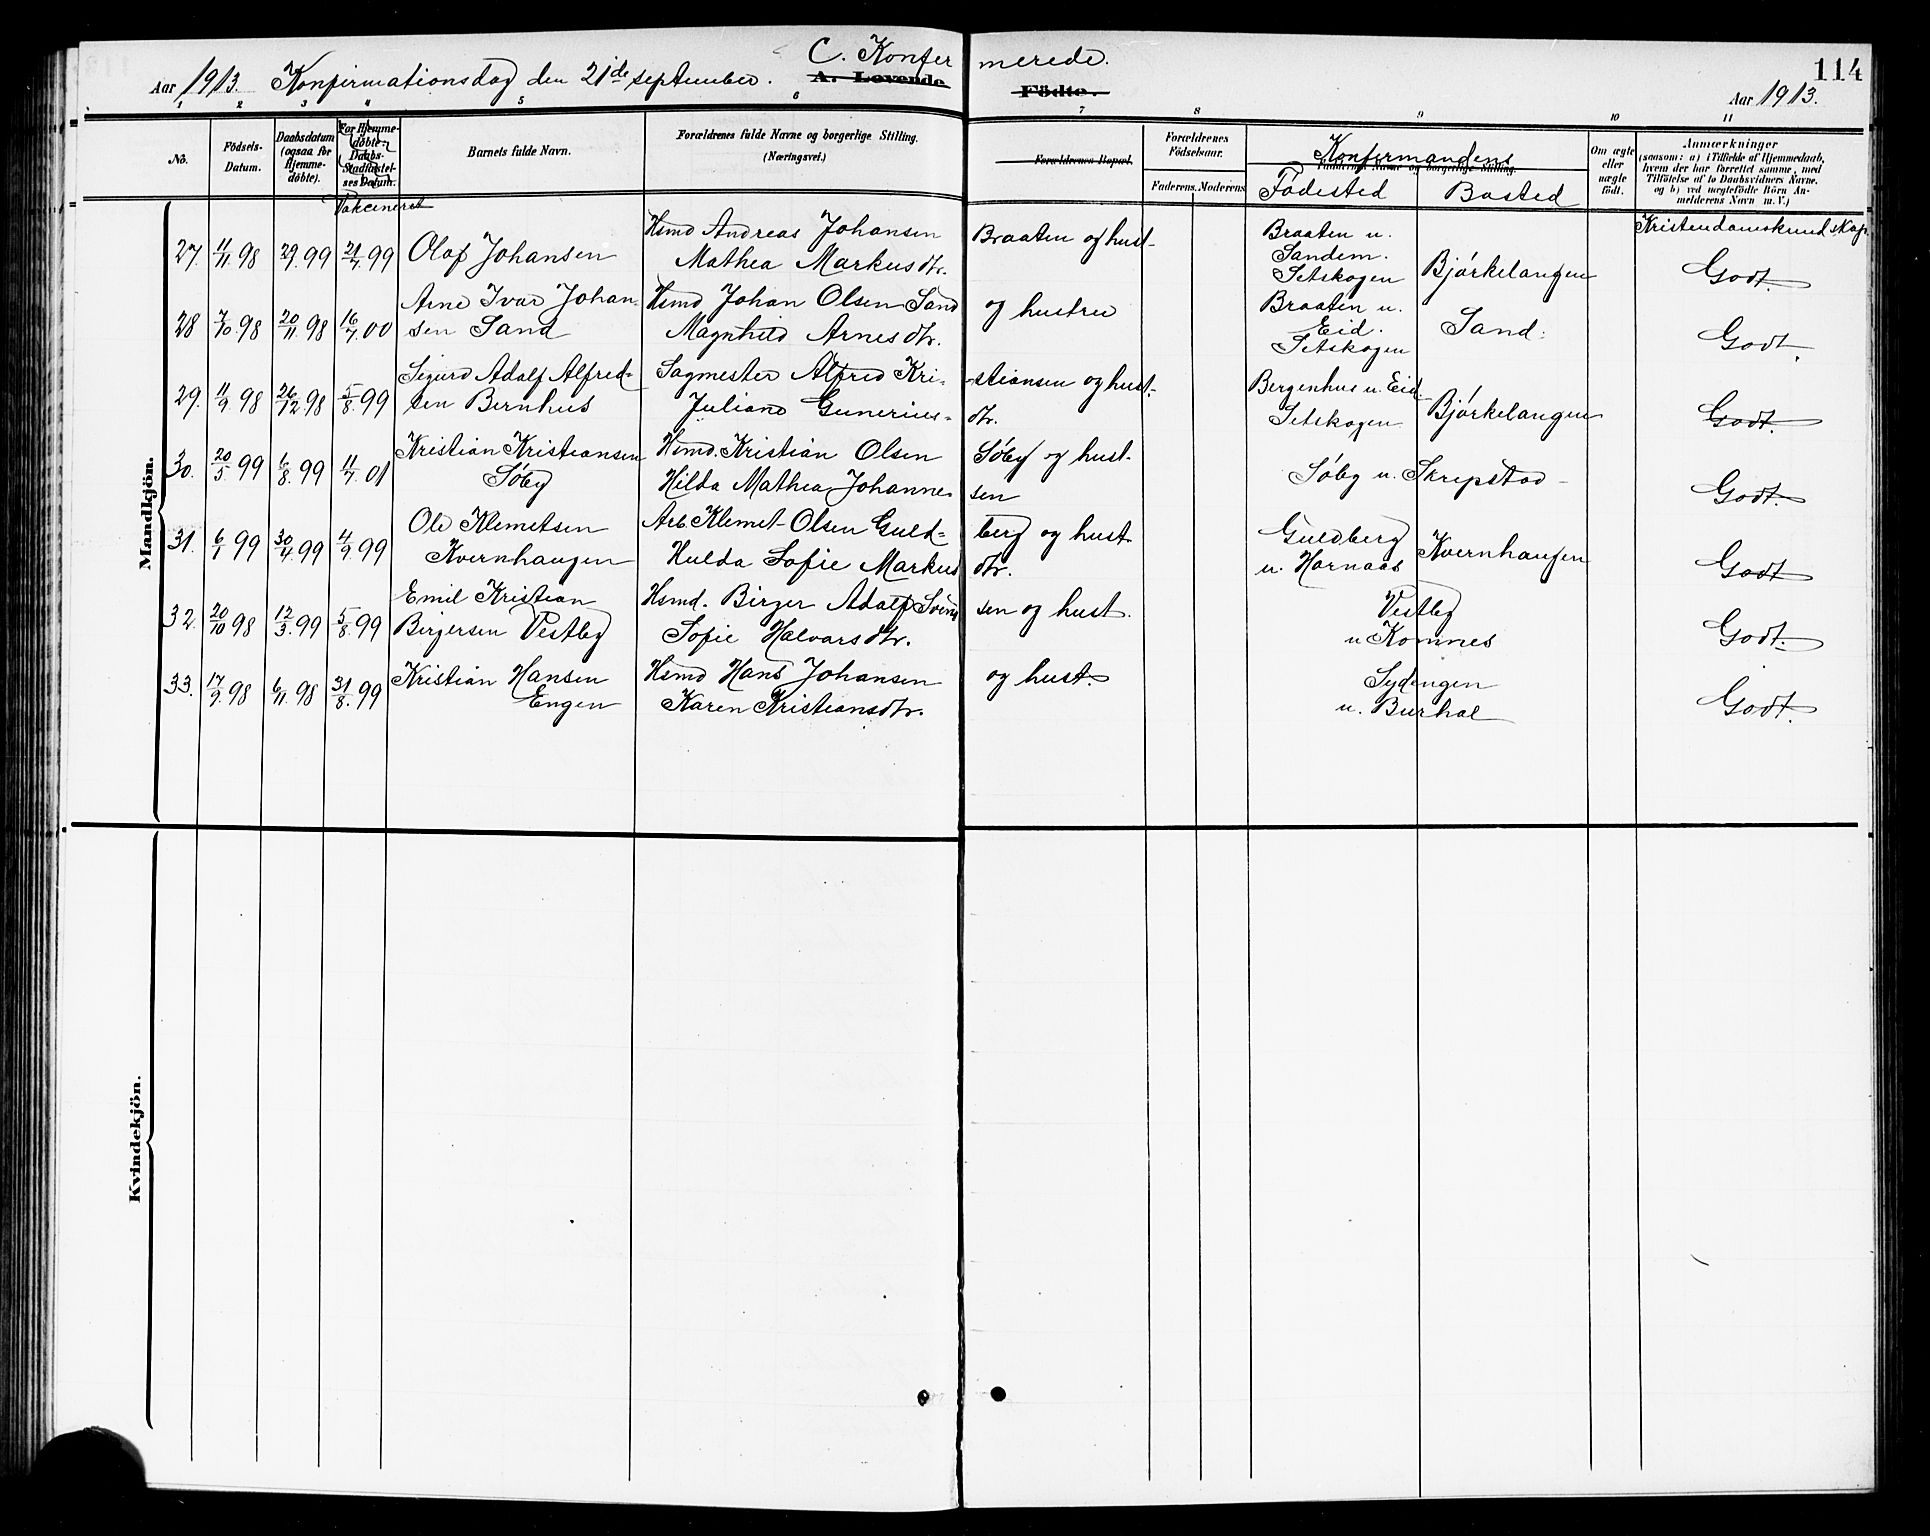 C. Konfer merede. 114
Aar 1913. Konfirmationsdag den 21de september. A. Levende Födte. Aar 1913.
1 2 3 4 5 6 7 8 9 10 11
No.
Födsels-
Datum.
Daabsdatum
(ogsaa for
Hjemme-
döbte).
For Hjemme-
döbte-
Daabs-
Stadfæstel-
ses Datum.
Vakcineret
Barnets fulde Navn.
Forældrenes fulde Navne og borgerlige Stilling.
(Næringsvei.)
Forældrenes Bopæl.
Forældrenes
Födselsaar.
Faderens. Moderens.
Konfirmandens
Faddernes Navne og borgerlige Stilling.
Födested Bosted
Om ægte
eller
uægte
födt.
Anmærkninger
(saasom: a) i Tilfælde af Hjemmedaab,
hvem der har forrettet samme, med
Tilföielse af to Daabsvidners Navne,
og b) ved uægtefödte Börn An-
melderens Navn m. V.)
Kristendomskundskap.
Mandkjön.
27. 11/11 98 29/1 99 21/7 99 Olaf Johansen
Hsmd Andreas Johansen Braaten og hust-
Mathea Markusdtr.
Braaten u.
Sandem.
Setskogen
Bjørkelangen
Godt.
28 7/10 98 20/11 98 16/7 00 Arne Ivar Johan
sen Sand
Hsmd Johan Olsen Sand og hustru
Magnhild Arnesdtr.
Braaten u.
Eid.
Setskogen
Sand.
Godt.
29. 11/9 98 26/12 98 5/8 99 Sigurd Adolf Alfred-
sen Bernhus
Sagmester Alfred Kri- -stiansen og hust-
Juliane Gunerius- dtr.
Bergenhus u. Eid
Setskogen
Bjørkelangen
Godt.
30. 20/5 99 6/8 99 11/7 01 Kristian Kristiansen
Søby
Hsmd. Kristian Olsen Søby og hust.
Hilda Mathea Johanne- sen
Søby u. Skripstad
Godt.
31. 6/1 99 30/4 99 4/9 99 Ole Klemetsen
Kvernhaugen
Arb Klemet Olsen Guld- berg og hust
Hulda Sofie Markus dtr.
Guldberg
u. Hornaas
Kvernhaugen
Godt
32. 20/10 98 12/3 99 5/8 99 Emil Kristian
Birgersen Vestby
Hsmd. Birger Adolf Svend sen og hust.
Sofie Halvorsdtr.
Vestby
u Komnes
Godt.
33. 17/9 98 6/11 98 31/8 99 Kristian Hansen
Engen
Hsmd Hans Johansen og hust.
Karen Kristiansdtr.
Sydengen
u. Burhol
Godt.
Kvindekjön.